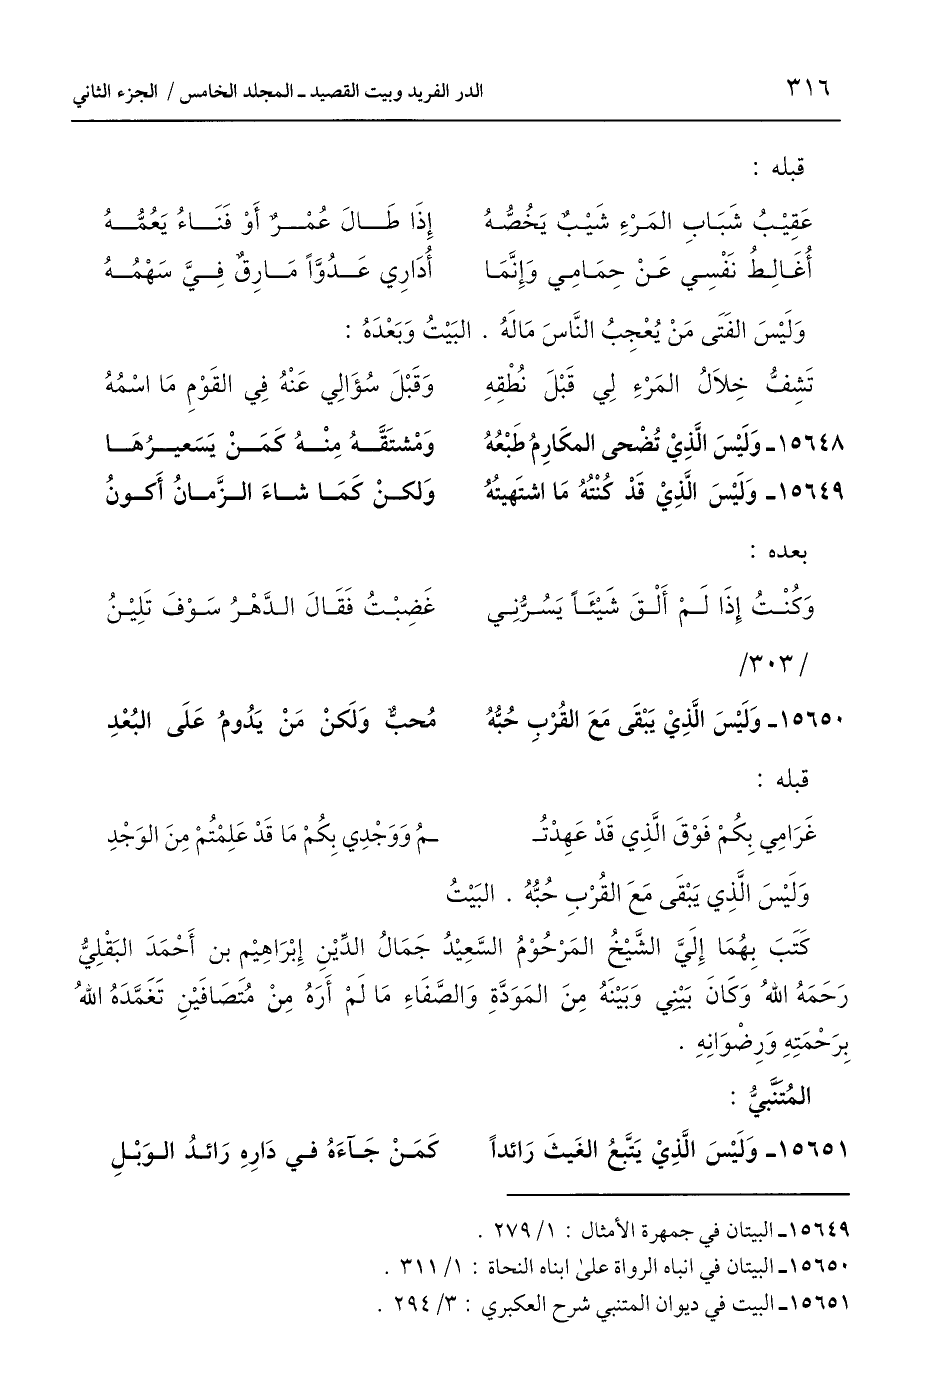 ٣١٦ الدر الفريد وبيت القصيد ـ المجلد الخامس / الجزء الثاني
قبله :
عَقِيْبُ شَبَابِ المَرْءِ شَيْبٌ يَخُصُّهُ إِذَا طَالَ عُمْرٌ أَوْ فَنَاءُ يَعُمُّهُ
أُغَالِطُ نَفْسِي عَنْ حِمَامِي وَإِنَّمَا أُدَارِي عَدُوَّاً مَارِقٌ فِيَّ سَهْمُهُ
وَلَيْسَ الفَتَى مَنْ يُعْجِبُ النَّاسَ مَالَهُ . البَيْتُ وَبَعْدَهُ :
تَشِفُّ خِلاَلُ المَرْءِ لِي قَبْلَ نُطْقِهِ وَقَبْلَ سُؤَالِي عَنْهُ فِي القَوْمِ مَا اسْمُهُ
١٥٦٤٨ـ وَلَيْسَ الَّذِيْ تُضْحى المكَارِمُ طَبْعُهُ وَمْشتَقَّهُ مِنْهُ كَمَنْ يَسَعيرُهَا
١٥٦٤٩ـ وَلَيْسَ الَّذِيْ قَدْ كُنْتُهُ مَا اشتَهيتُهُ وَلكنْ كَمَا شاءَ الزَّمانُ أكونُ
بعده :
وَكُنْتُ إِذَا لَمْ أَلْقَ شَيْئَاً يَسُرُّنِي غَضِبْتُ فَقَالَ الدَّهْرُ سَوْفَ تَلِيْنُ
/٣٠٣/
١٥٦٥٠ـ وَلَيْسَ الَّذِيْ يَبْقَى مَعَ القُرْبِ حُبُّهُ مُحبٌّ وَلَكنْ مَنْ يَدُومُ عَلَى البُعْدِ
قبله :
غَرَامِي بِكُمْ فَوْقَ الَّذِي قَدْ عَهِدْتُـ ـمُ وَوَجْدِي بِكُمْ مَا قَدْ عَلِمْتُمْ مِنَ الوَجْدِ
وَلَيْسَ الَّذِي يَبْقَى مَعَ القُرْبِ حُبُّهُ . البَيْتُ
كَتَبَ بِهُمَا إِلَيَّ الشَّيْخُ المَرْحُومُ السَّعِيْدُ جَمَالُ الدِّيْنِ إِبْرَاهِيْم بن أَحْمَدَ البَقْلِيُّ
رَحَمَهُ اللهُ وَكَانَ بَيْنِي وَبَيْنَهُ مِنَ المَوَدَّةِ وَالصَّفَاءِ مَا لَمْ أَرَهُ مِنْ مُتَصَافَيْنِ تَغَمَّدَهُ اللهُ
بِرَحْمَتِهِ وَرِضْوَانِهِ .
المُتَنَّبِيُّ :
١٥٦٥١ـ وَلَيْسَ الَّذِيْ يَتَّبعُ الغَيثَ رَائداً كَمَنْ جَآءَهُ في دَارِهِ رَائدُ الوَبْلِ
١٥٦٤٩ـ البيتان في جمهرة الأمثال : ١/ ٢٧٩ .
١٥٦٥٠ـ البيتان في انباه الرواة على ابناه النحاة : ١/ ٣١١ .
١٥٦٥١ـ البيت في ديوان المتنبي شرح العكبري : ٣/ ٢٩٤ .